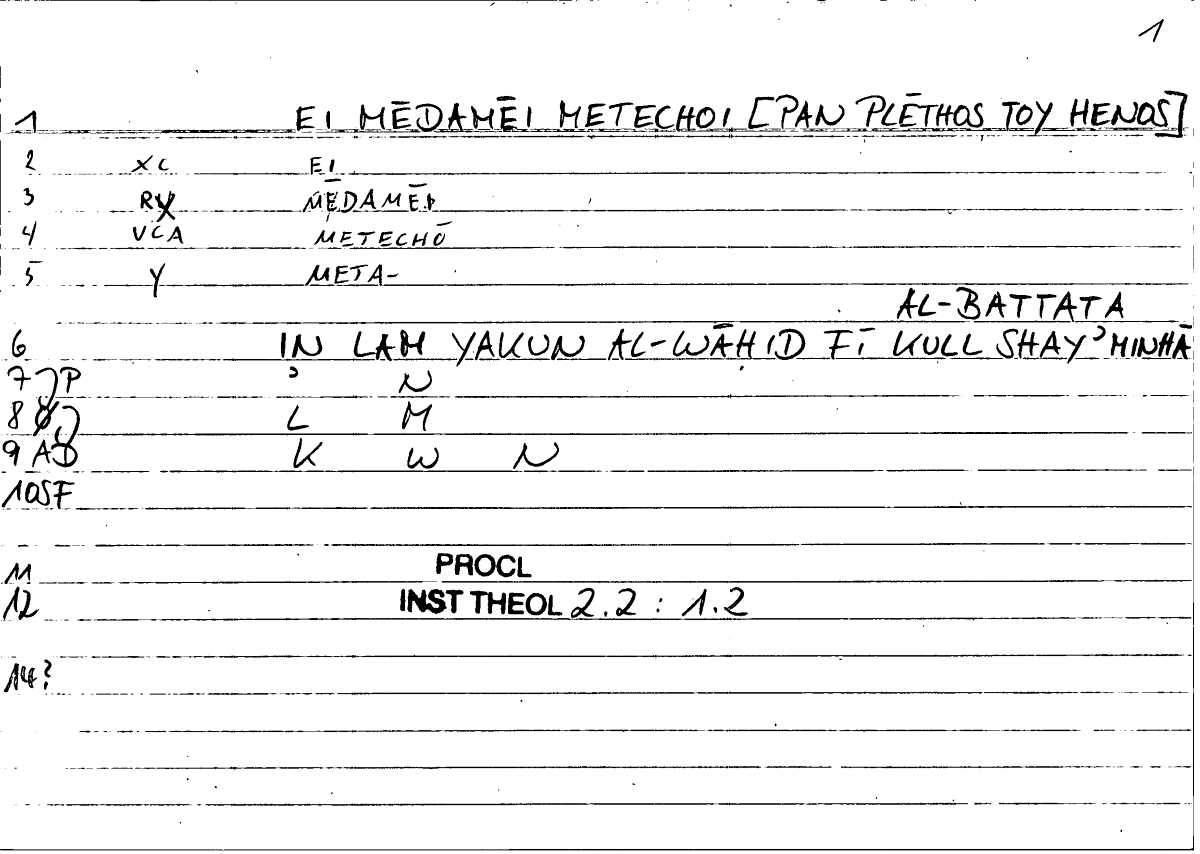 1
1 EI MĒDAMĒI METECHOI [PAN PLĒTHOS TOY HENOS]
2 XC EI
3 RX MĒDAMĒI
4 VCA METECHŌ
5 Y META-
AL-BATTATA
6 IN LAM YAKUN AL-WĀHID FĪ KULL SHAYʾ MINHĀ
7 P ʾ N
8 L M
9 AD K W N
10 SF
11 PROCL
12 INST THEOL 2.2 : 1.2
14?